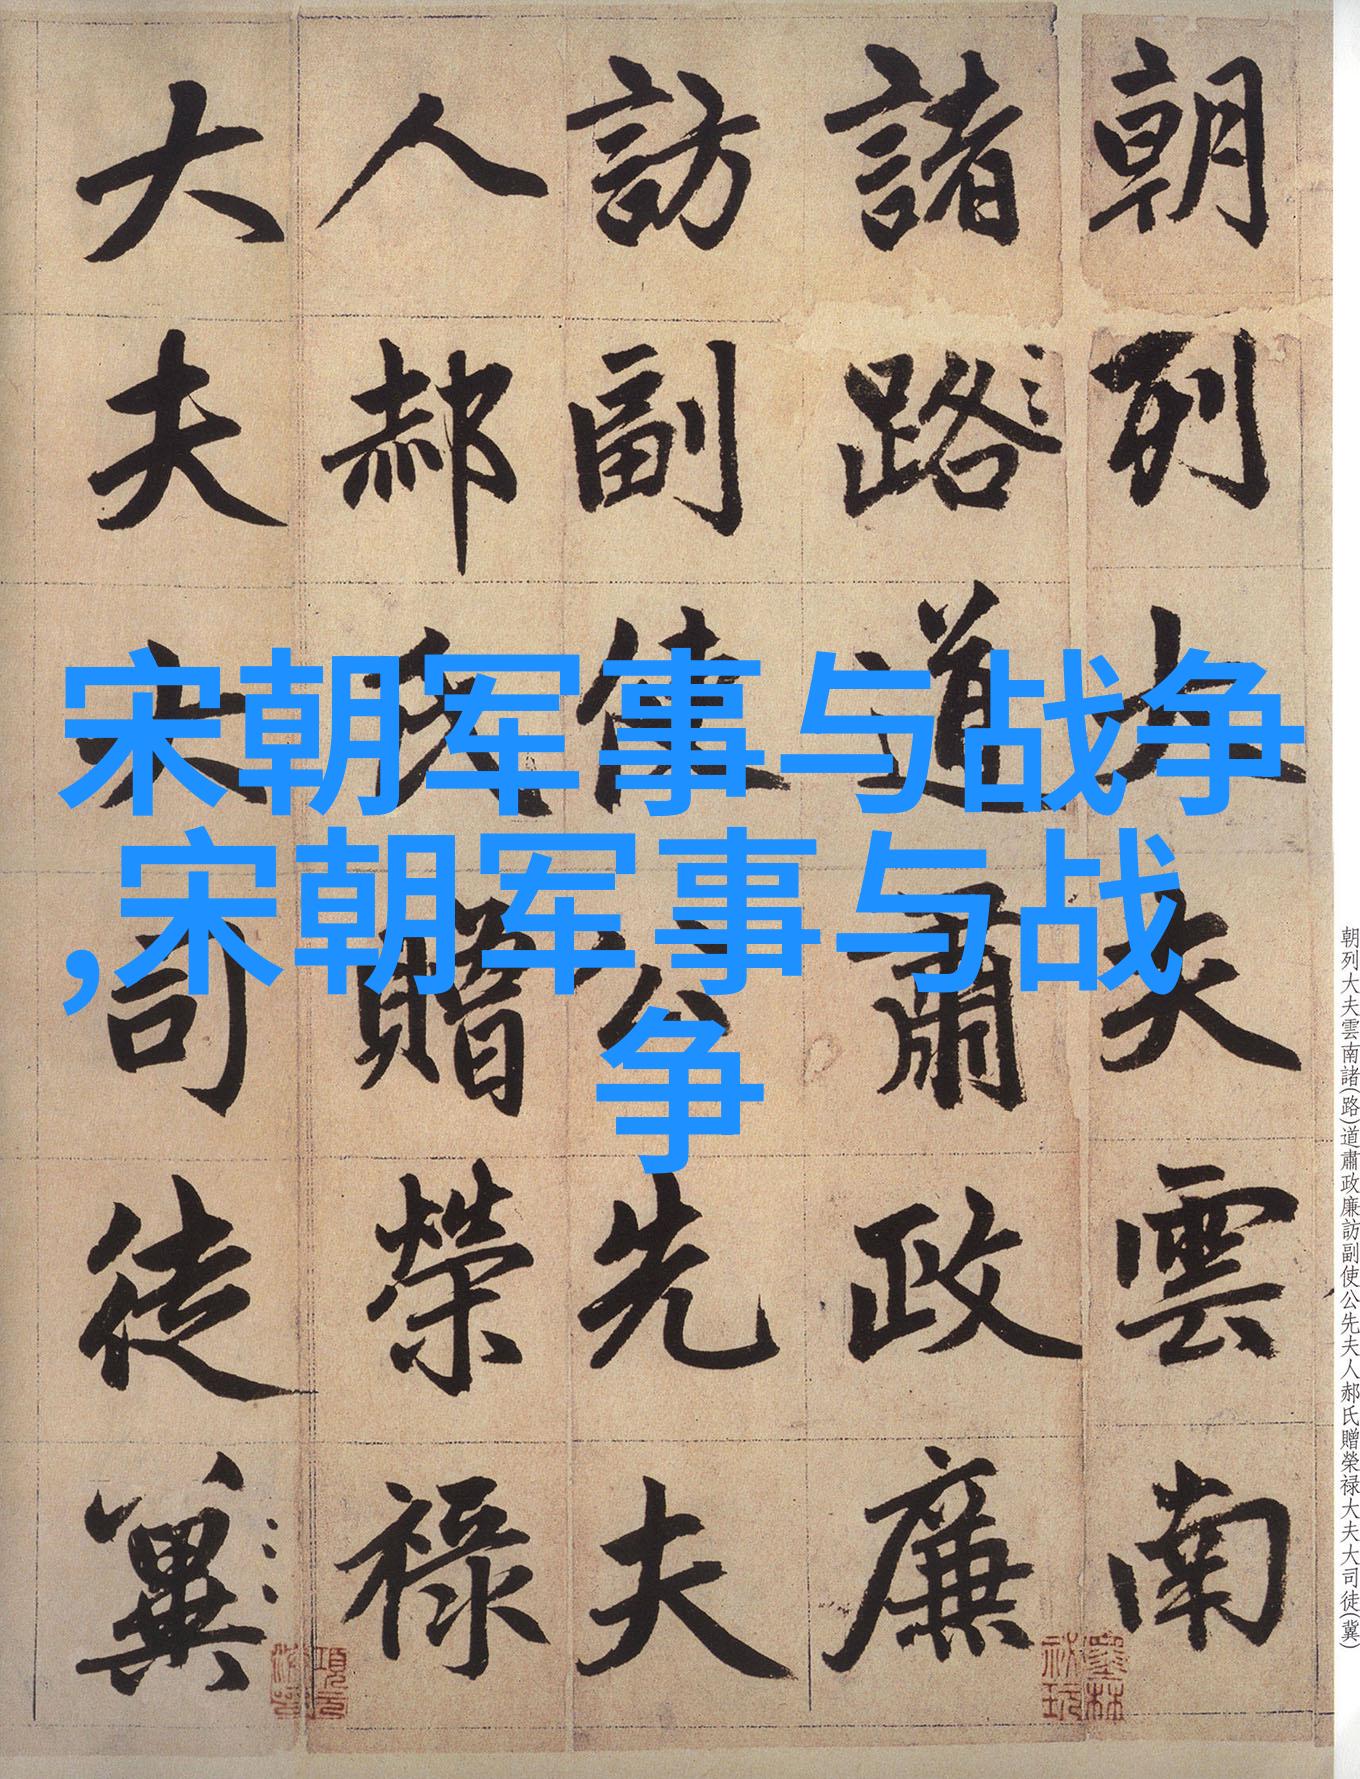 宋朝军事与战争
,宋朝军事与战
争
朝列大夫雲南
諸路道肅政廉
訪副使公先夫
人郝氏贈榮禄
大夫大司徒冀
朝列大夫雲南諸(路)道肅政廉訪副使公先夫人郝氏贈榮禄大夫大司徒(冀)